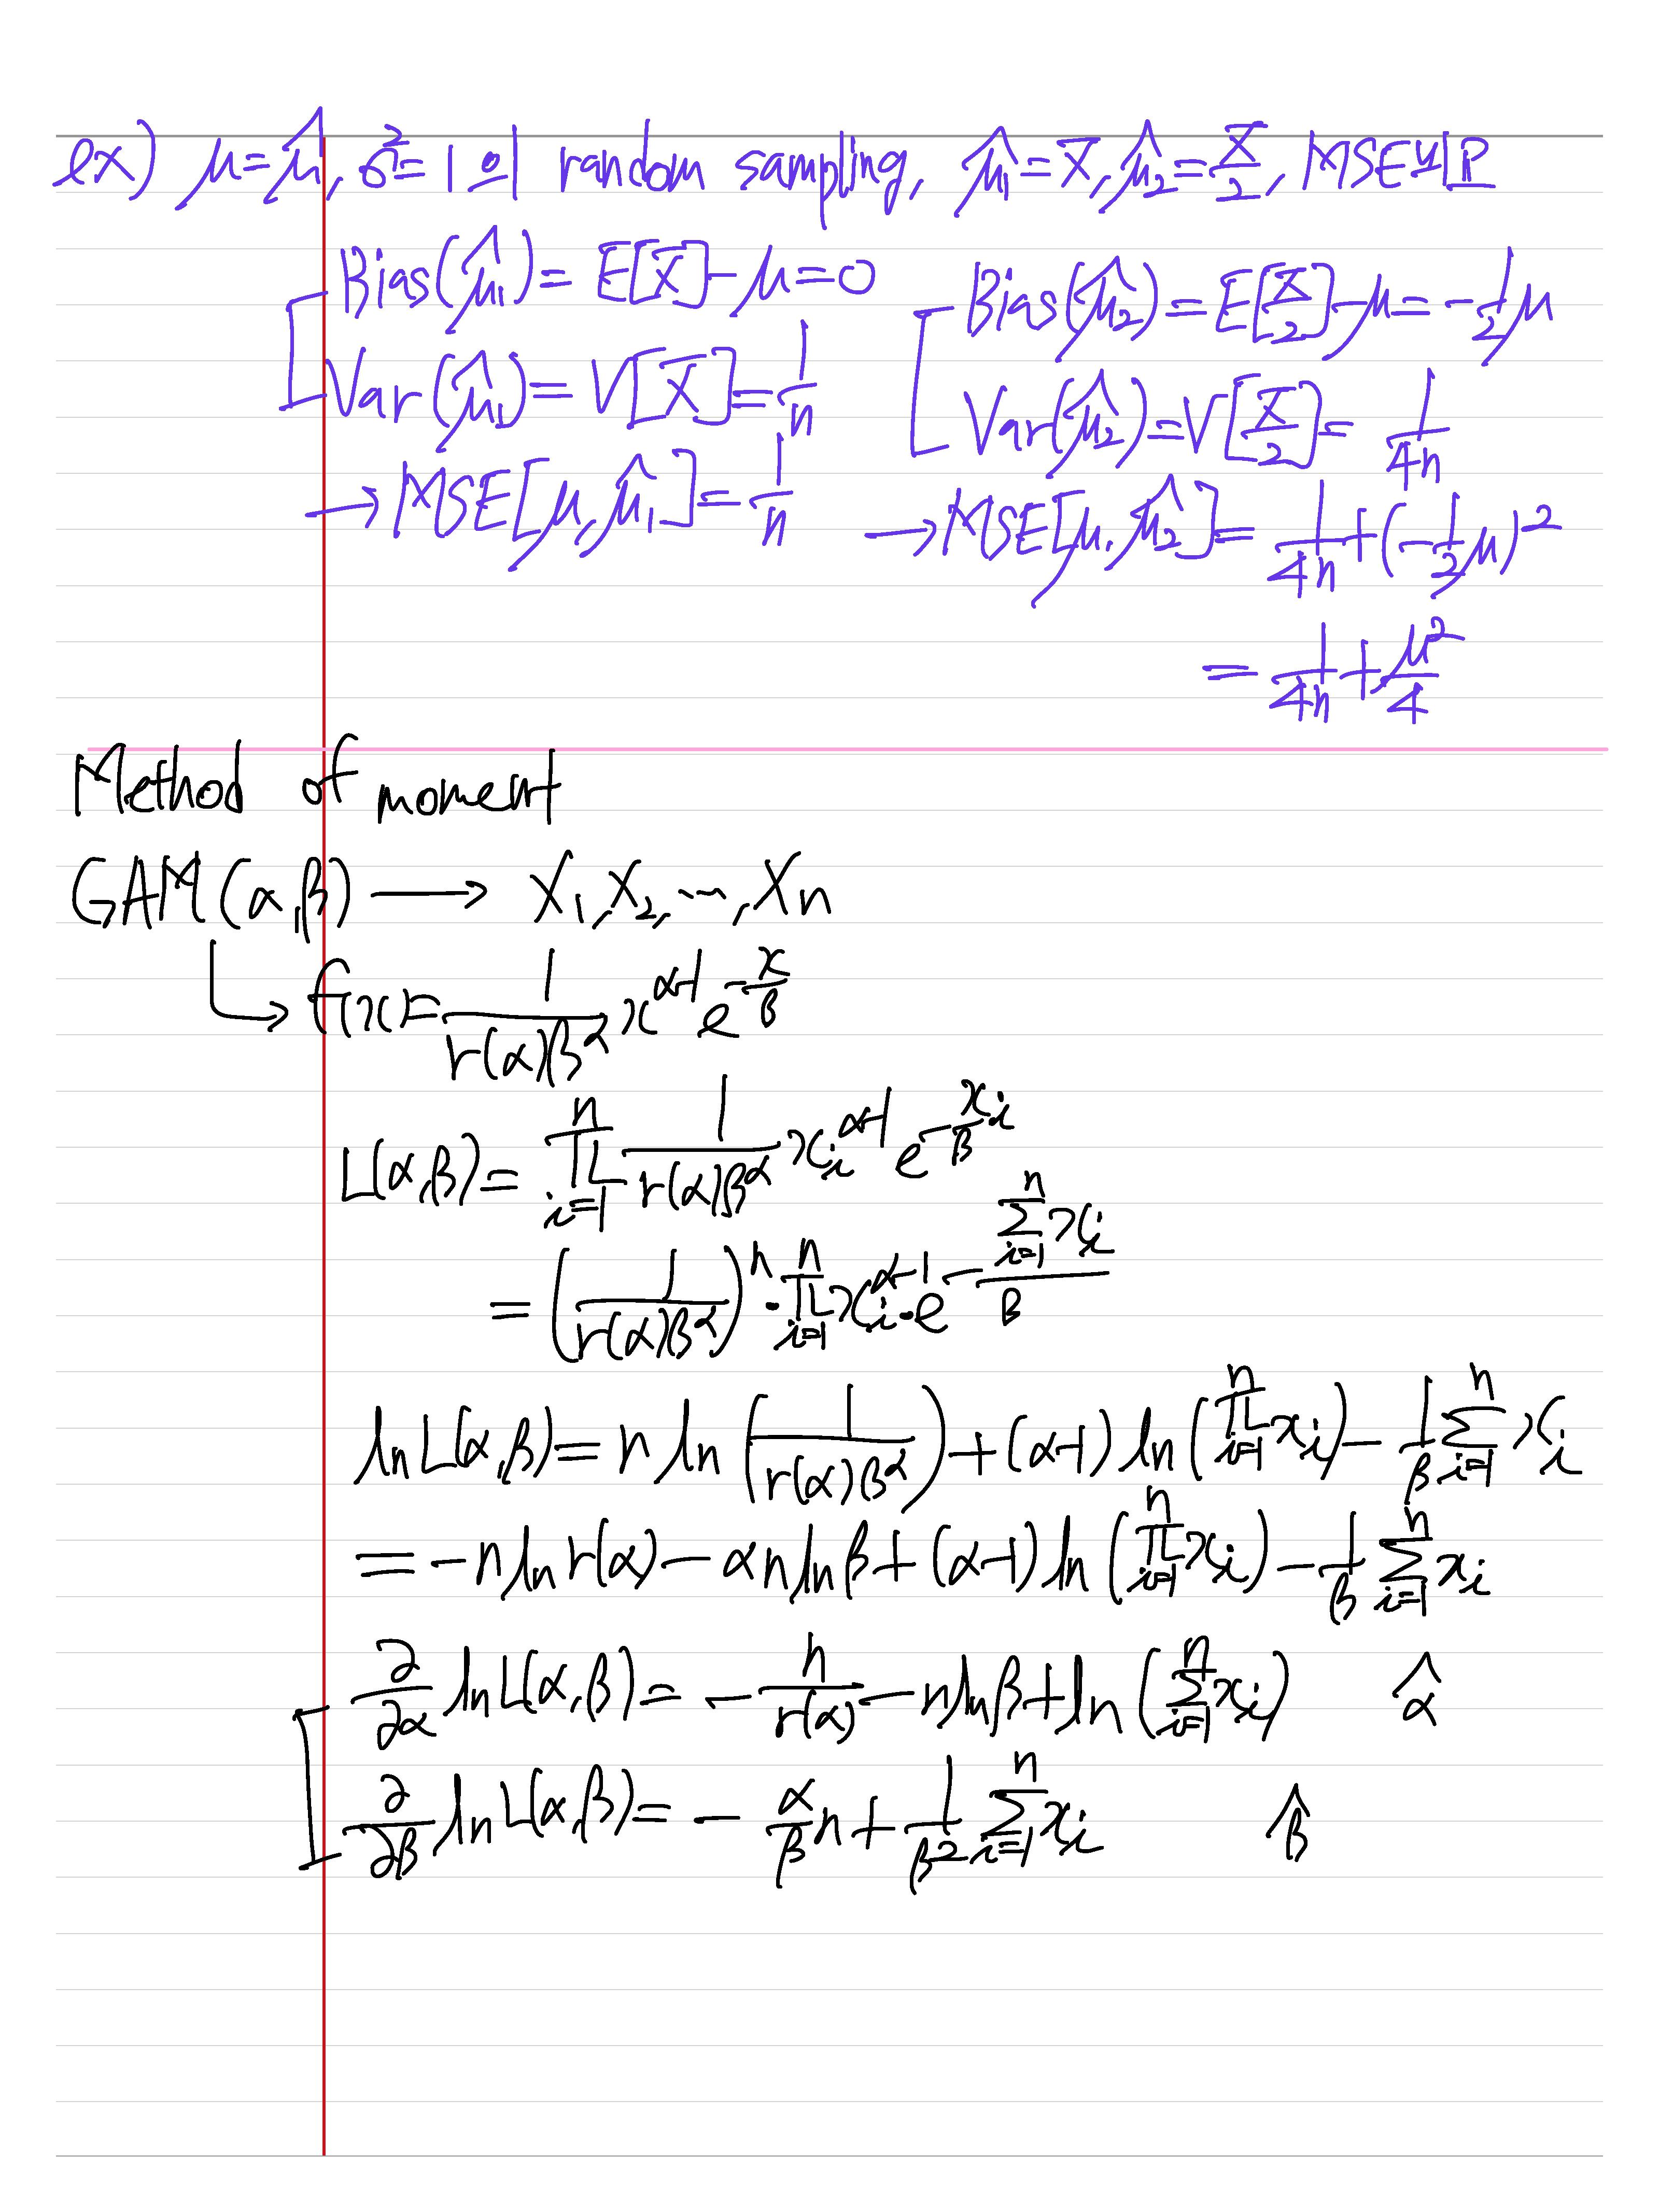 ex) μ=μ̂, σ²=1인 random sampling, μ̂₁=X̄, μ̂₂=X̄/2, MSE비교
Bias(μ̂₁)=E[X̄]-μ=0
Var(μ̂₁)=V[X̄]=1/n
→MSE[μ,μ̂₁]=1/n
Bias(μ̂₂)=E[X̄/2]-μ=-1/2μ
Var(μ̂₂)=V[X̄/2]=1/4n
→MSE[μ,μ̂₂]=1/4n+(-1/2μ)²
=1/4n+μ²/4
Method of moment
GAM(α,β)→X₁,X₂,…,Xn
↳f(x)=1/(r(α)β^α) x^(α-1) e^(-x/β)
L(α,β)=∏_{i=1}^{n} 1/(r(α)β^α) x_i^(α-1) e^(-x_i/β)
=(1/(r(α)β^α))^n · ∏_{i=1}^{n} x_i^(α-1) · e^(-∑_{i=1}^{n} x_i/β)
ln L(α,β)=n ln(1/(r(α)β^α))+(α-1) ln(∏_{i=1}^{n} x_i)-1/β ∑_{i=1}^{n} x_i
=-n ln r(α)-αn ln β+(α-1) ln(∏_{i=1}^{n} x_i)-1/β ∑_{i=1}^{n} x_i
∂/∂α ln L(α,β)=-n/r(α)-n ln β+ln(∑_{i=1}^{n} x_i) α̂
∂/∂β ln L(α,β)=-α/β n+1/β² ∑_{i=1}^{n} x_i β̂